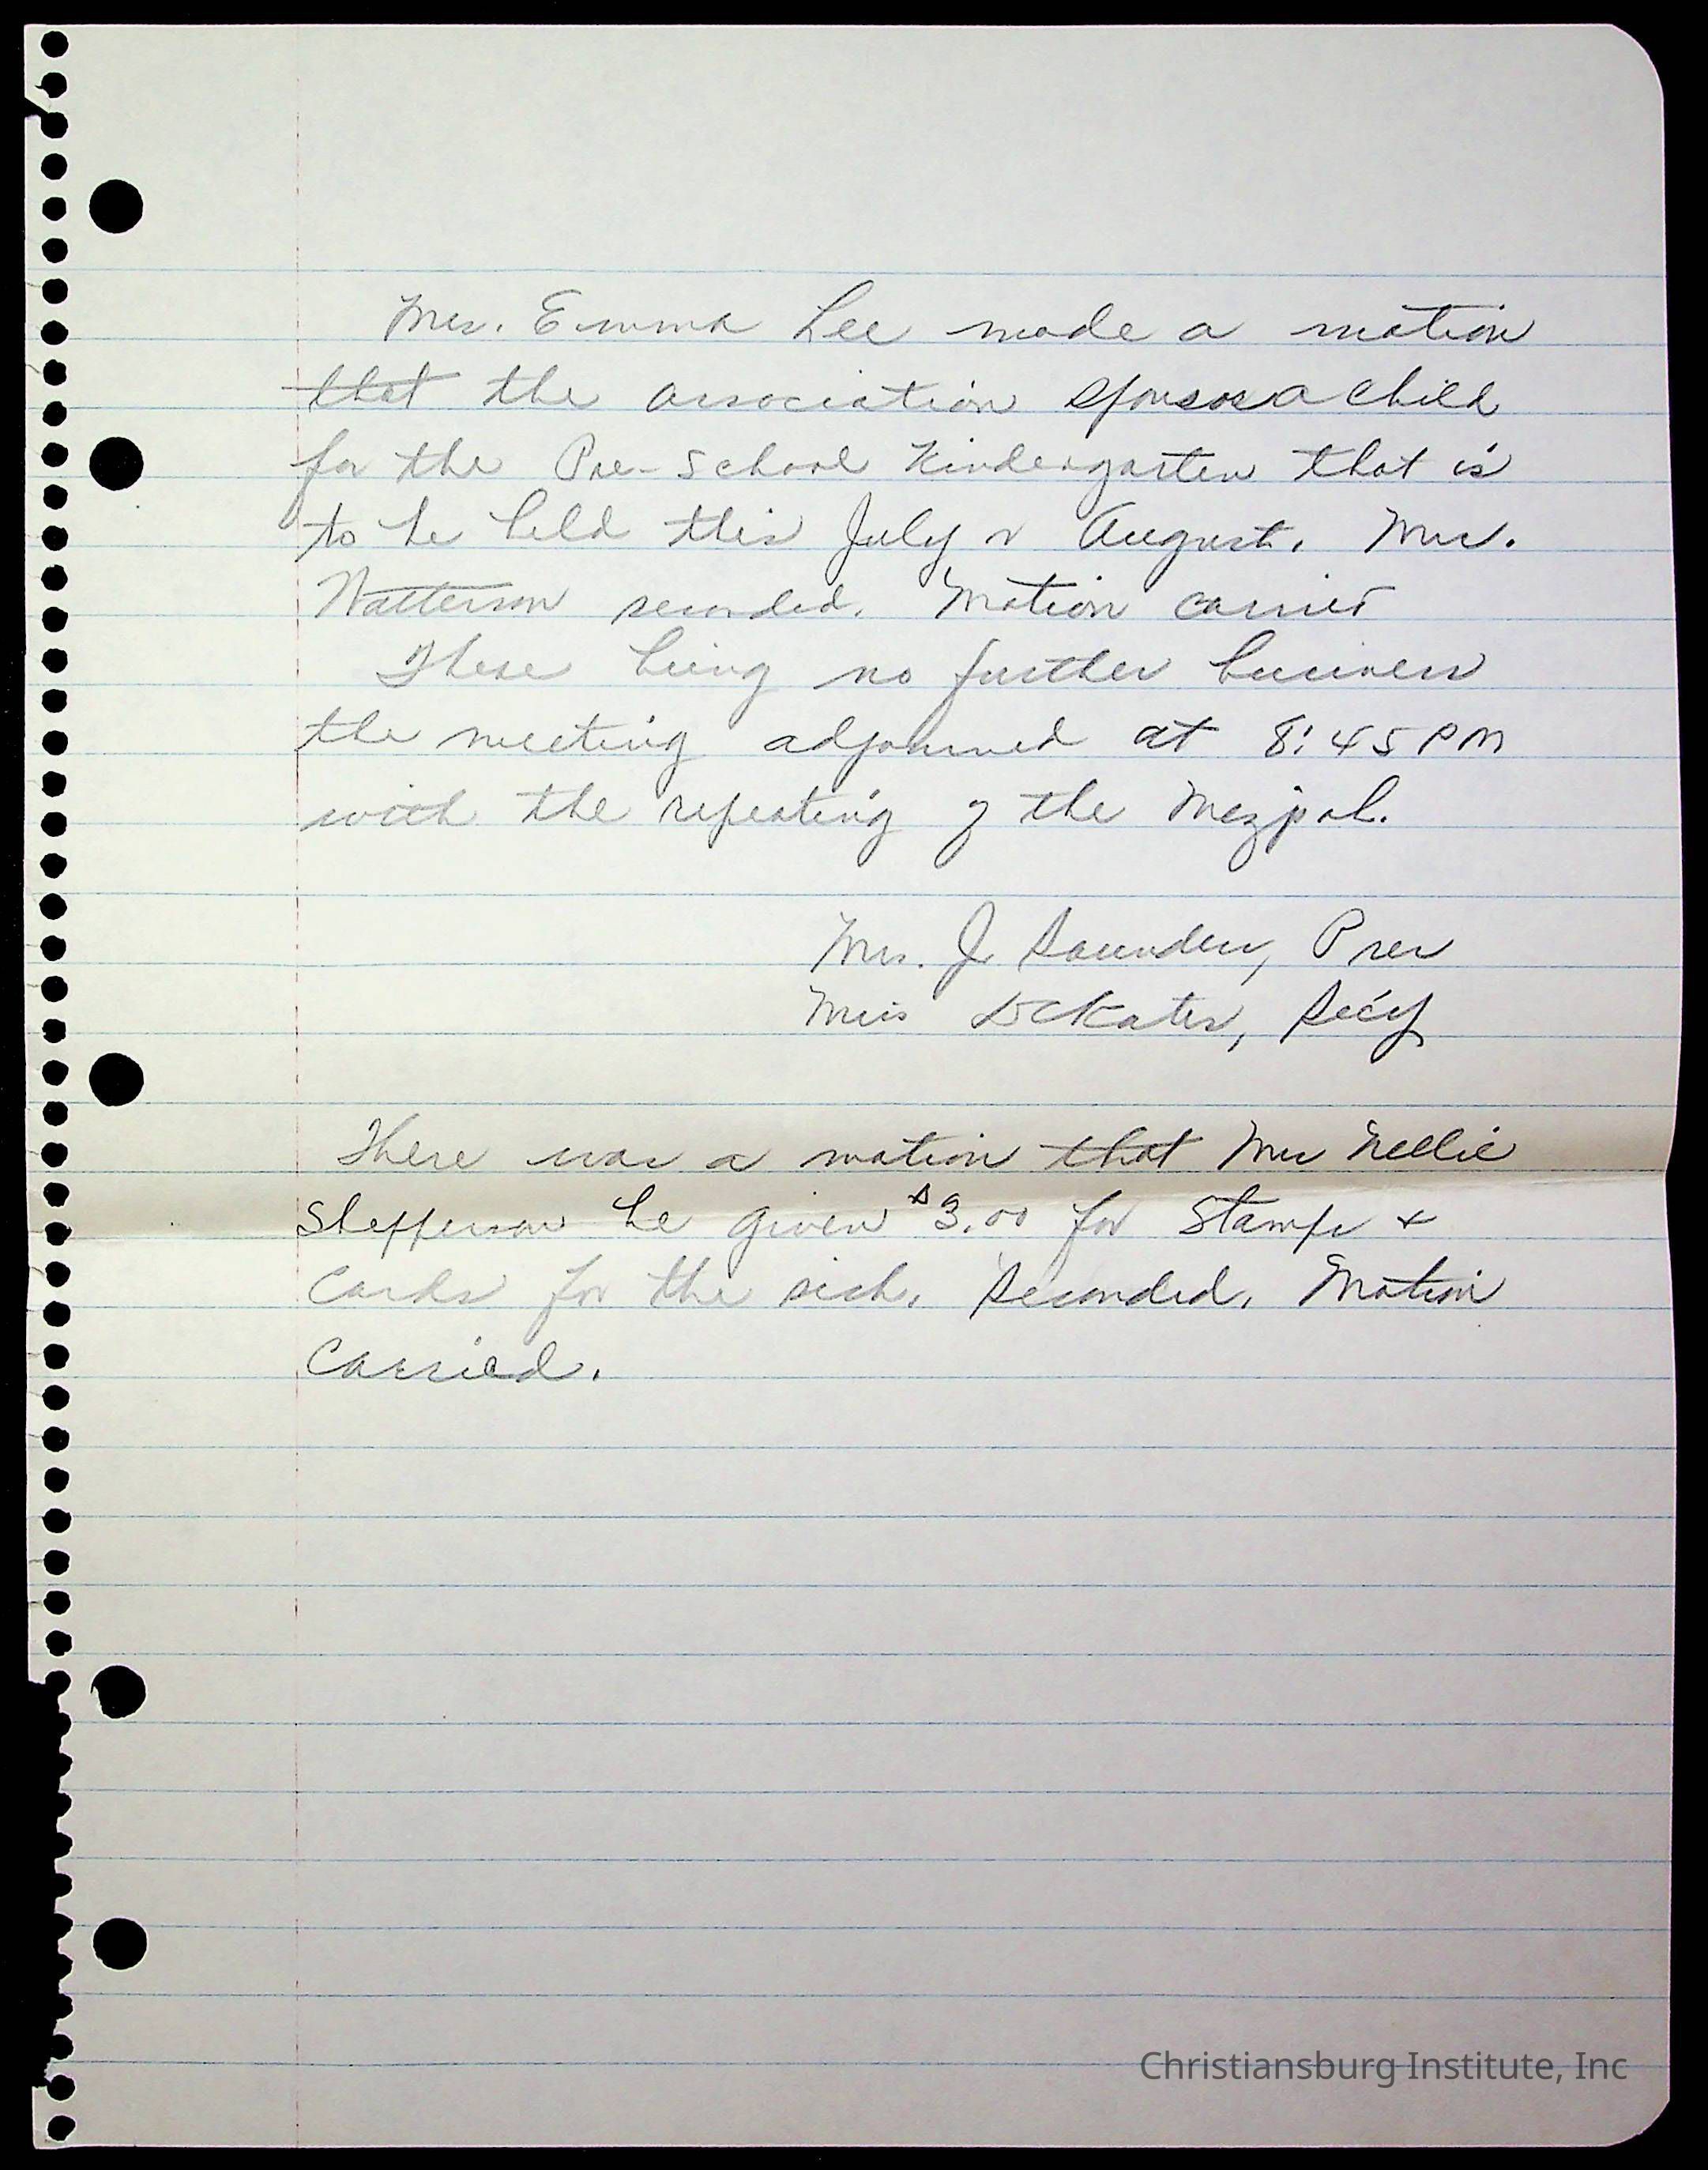 Mrs. Emma Lee made a motion
that the association sponsor a child
for the Pre-School Kindergarten that is
to be held this July & August. Mrs.
Watterson seconded. Motion carried
There being no further business
the meeting adjourned at 8:45 PM
with the repeating of the Mezpal.
Mrs. J Saunders, Pres
Miss D Kates, Sec'y
There was a motion that Mrs Nellie
Shepperson be given $3.00 for Stamps &
Cards for the sick. Seconded. Motion
Carried.
Christiansburg Institute, Inc